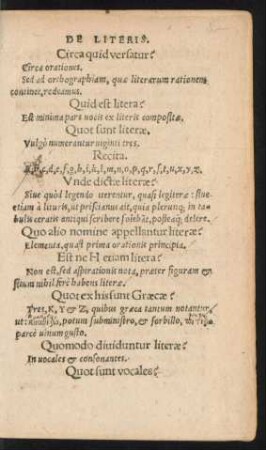 DE LITERIS.
Circa quid versatur?
Circa orationes.
Sed ad orthographiam, quæ literarum rationem
continet, redeamus.
Quid est litera?
Est minima pars vocis ex literis compositæ.
Quot sunt literæ.
Vulgò numerantur uiginti tres.
Recita.
b, c, d, e, f, g, h, i, k, l, m, n, o, p, q, r, s, t, u, x, y, z.
Vnde dictæ literæ?
Siue quòd legendo iterentur, quasi legiteræ: siue
etiam à lituris, ut priscianus ait, quia plerunq; in ta-
bulis ceratis antiqui scribere solebāt, posteaq́; delere.
Quo alio nomine appellantur literæ?
Elementa, quasi prima orationis principia.
Est ne H etiam litera?
Non est, sed aspirationis nota, præter figuram &
scium nihil ferè habens literæ.
Quot ex his sunt Græcæ?
Tres, K, Y & Z, quibus græca tantum notantur,
ut: potum subministro, & sorbillo,
parcè uinum gusto.
Quomodo diuiduntur literæ?
In uocales & consonantes.
Quot sunt vocales?